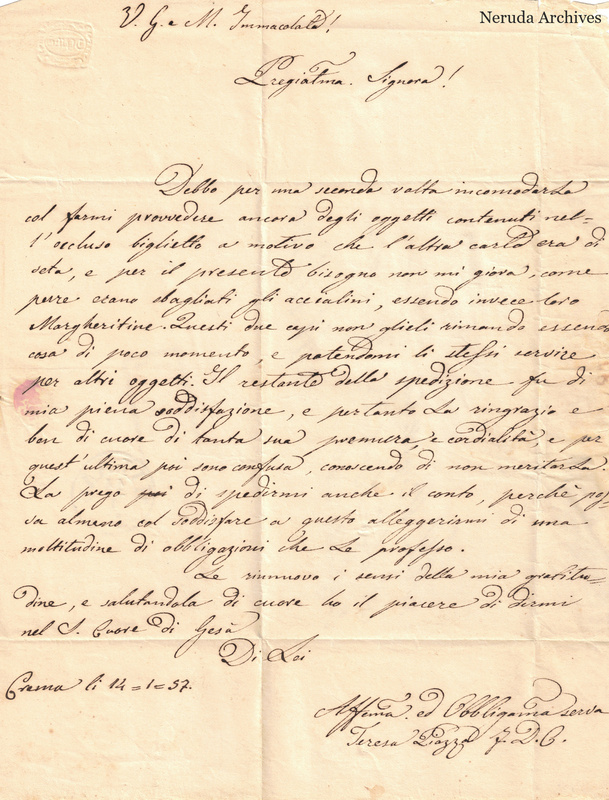 Neruda Archives
V. G. e M. Immacolata!
Pregiatma. Signora!
Debbo per una seconda volta incomodarLa
col farmi provvedere ancora degli oggetti contenuti nel=
l'occluso biglietto a motivo che l'altra carta era di
seta, e per il presente bisogno non mi giova, come
pure erano sbagliati gli accialini, essendo invece loro
Margheritine. Questi due capi non glieli rimando essendo
cosa di poco momento, e potendomi li stessi servire
per altri oggetti. Il restante della spedizione fu di
mia piena soddisfazione, e pertanto La ringrazio e
ben di cuore di tanta sua premura, e cordialità, e per
quest'ultima poi sono confusa, conoscendo di non meritarLa.
La prego di spedirmi anche il conto, perchè pos
sa almeno col soddisfare a questo alleggerirmi di una
moltitudine di obbligazioni che Le professo.
Le rinnuovo i sensi della mia gratitu=
dine, e salutandola di cuore ho il piacere di dirmi
nel S. Cuore di Gesù
Di Lei
Crema li 14=1=57.
Affma. ed Obbligatma serva
Teresa Piazza F. D. C.